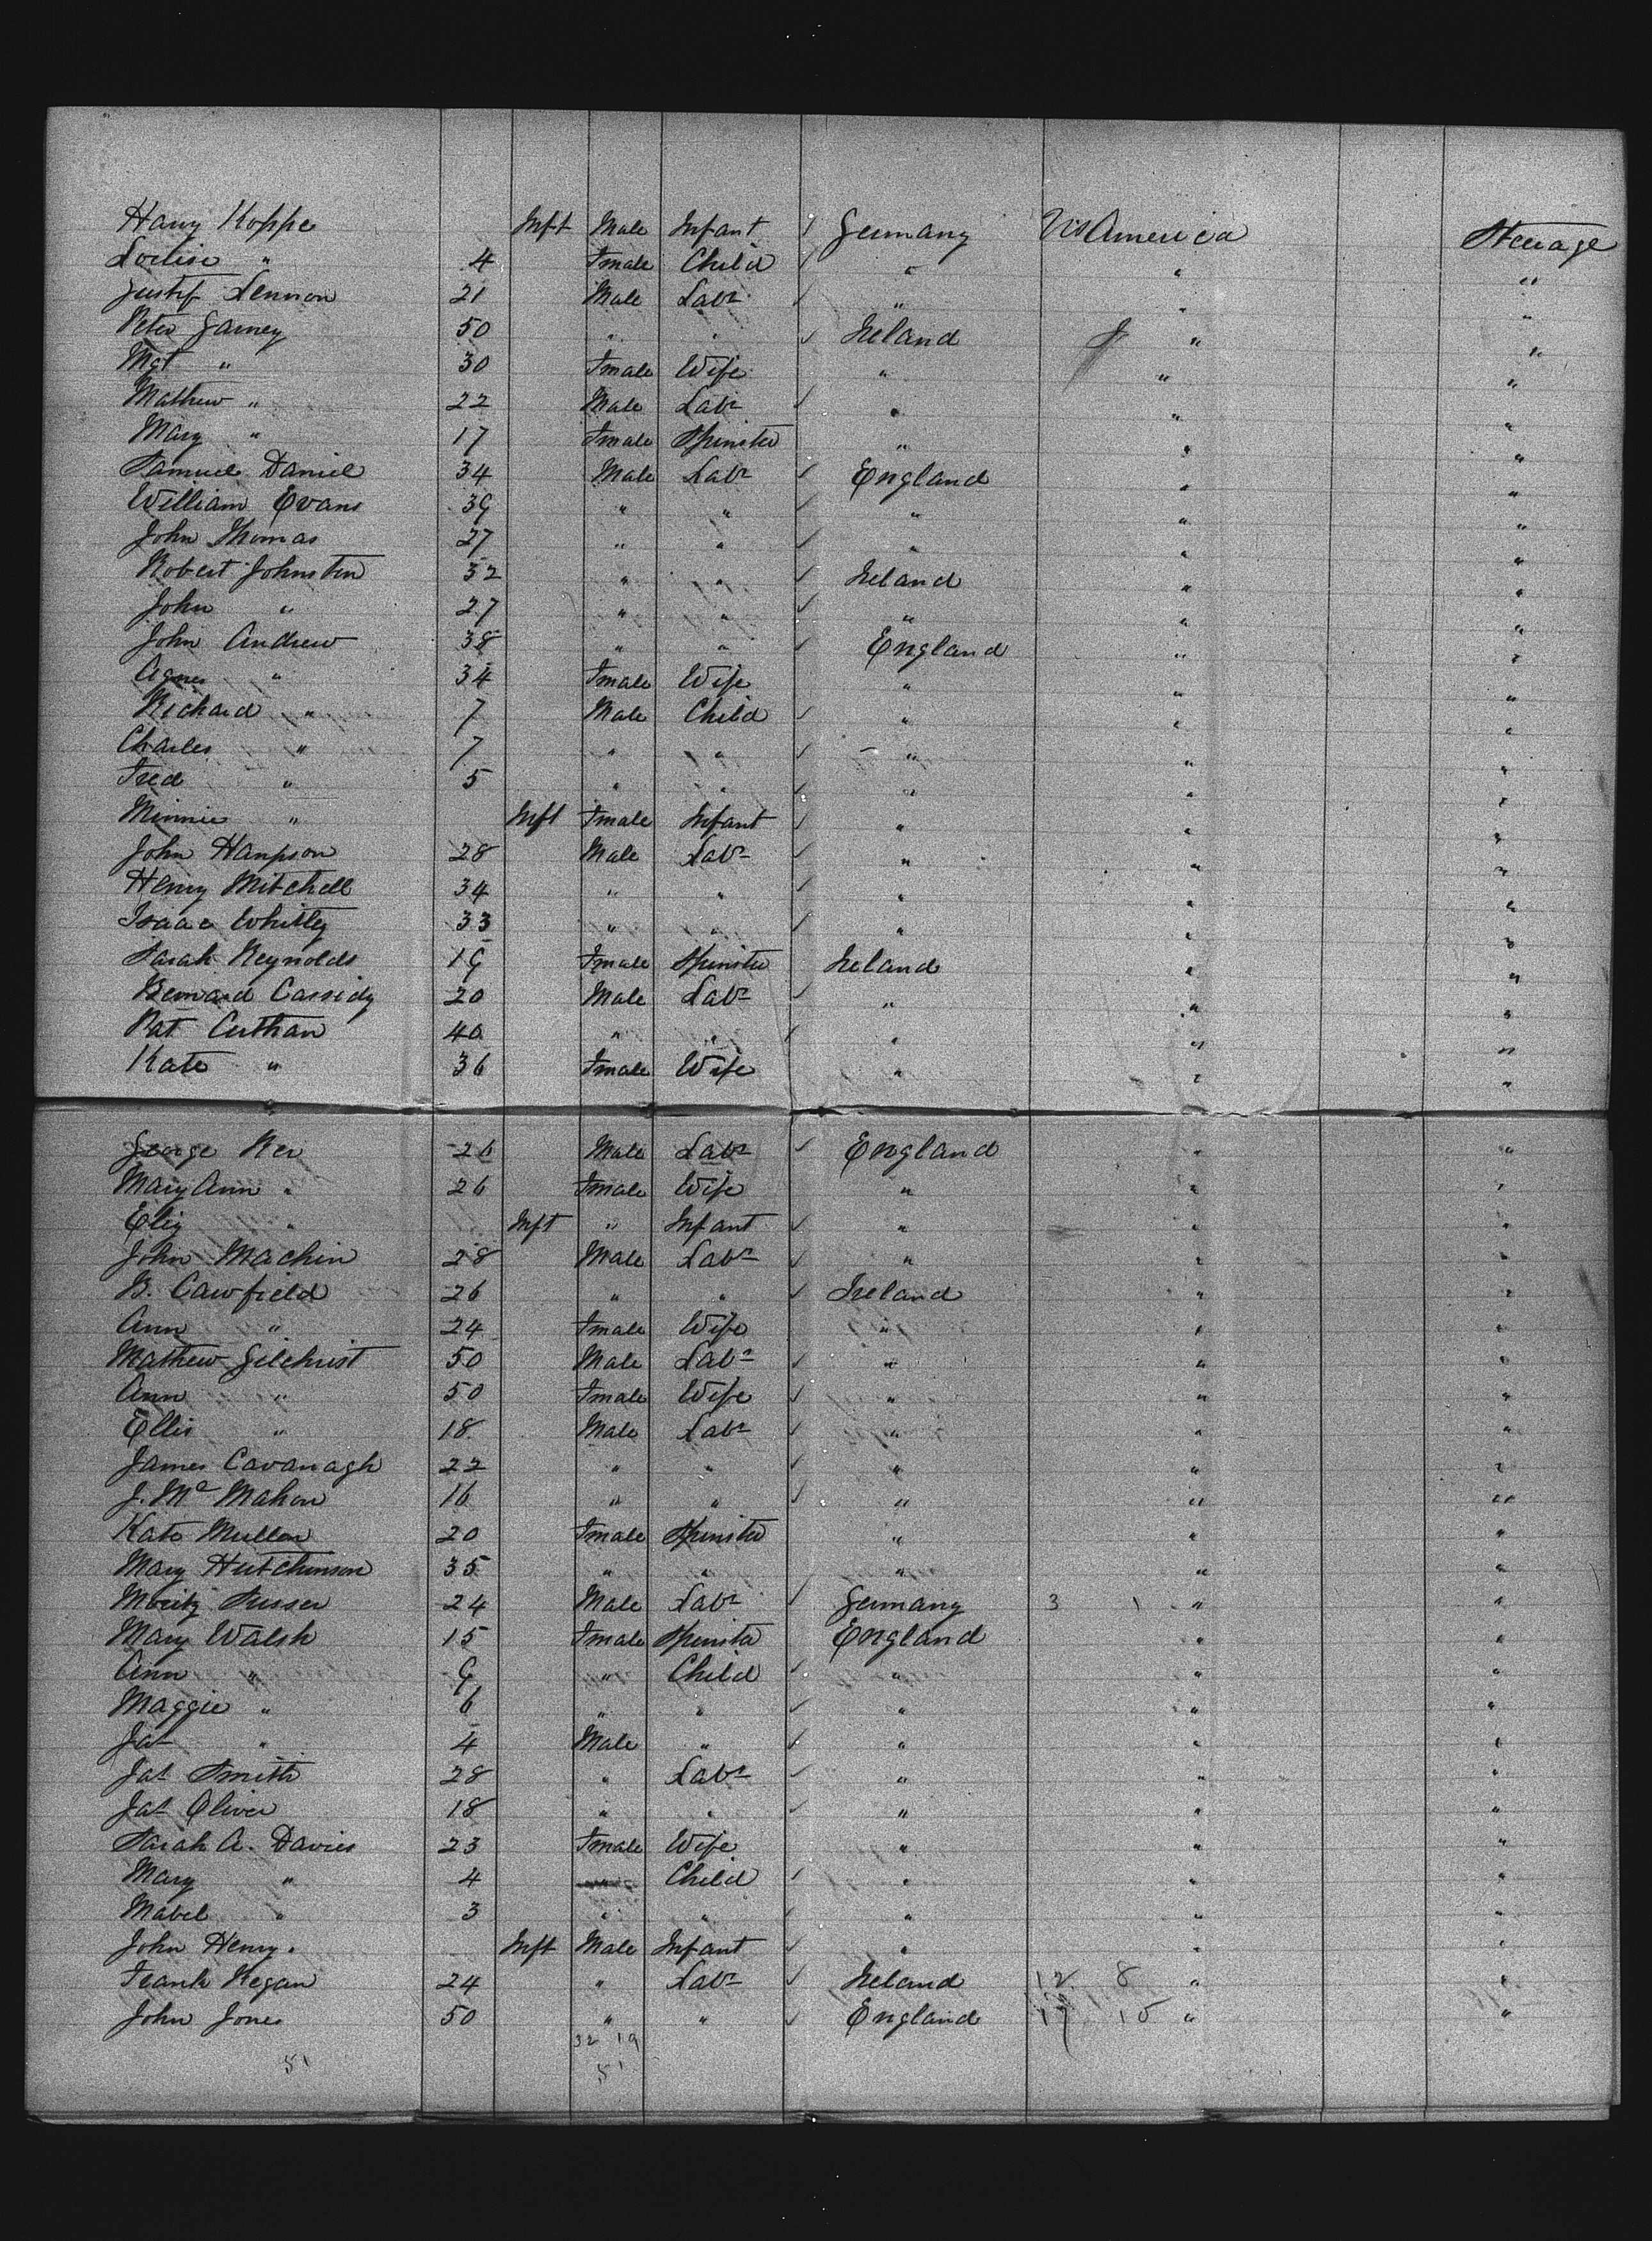 Harry Koppe Inft Male Infant Germany US America Steerage
Louise " 4 Fmale Child " " "
Gustif Lennon 21 Male Labr " " "
Peter Garney 50 " " Ireland " "
Mgt " 30 Fmale Wife " " "
Mathew " 22 Male Labr " " "
Mary " 17 Fmale Spinster " " "
Samuel Daniel 34 Male Labr England " "
William Evans 39 " " " " "
John Thomas 27 " " " " "
Robert Johnston 32 " " Ireland " "
John " 27 " " " " "
John Andrew 38 " " England " "
Agnes " 34 Fmale Wife " " "
Richard " 7 Male Child " " "
Charles " 7 " " " " "
Fred " 5 " " " " "
Minnie " Inft Fmale Infant " " "
John Hanpson 28 Male Labr " " "
Henry Mitchell 34 " " " " "
Isaac Whitty 33 " " " " "
Sarah Reynolds 19 Fmale Spinster Ireland " "
Bernard Cassidy 20 Male Labr " " "
Pat Cuthan 40 " " " " "
Kate " 36 Fmale Wife " " "
George Rev 26 Male Labr England " "
Mary Ann " 26 Fmale Wife " " "
Eliz " Inft " Infant " " "
John Machin 28 Male Labr " " "
B. Cawfield 26 " " Ireland " "
Ann " 24 Fmale Wife " " "
Mathew Gilchrist 50 Male Labr " " "
Ann " 50 Fmale Wife " " "
Ellis " 18 Male Labr " " "
James Cavanagh 22 " " " " "
J. Mc Mahon 16 " " " " "
Kate Mullen 20 Fmale Spinster " " "
Mary Hutchinson 35 " " " " "
Moritz Susser 24 Male Labr Germany 3 1 " "
Mary Walsh 15 Fmale Spinster England " "
Ann " 9 " Child " " "
Maggie " 6 " " " " "
Jas " 4 Male " " " "
Jas Smith 28 " Labr " " "
Jas Oliver 18 " " " " "
Sarah A. Davies 23 Fmale Wife " " "
Mary " 4 " Child " " "
Mabel " 3 " " " " "
John Henry " Inft Male Infant " " "
Frank Regan 24 " Labr Ireland 12 8 " "
John Jones 50 " " England 17 10 " "
32 19
51 51